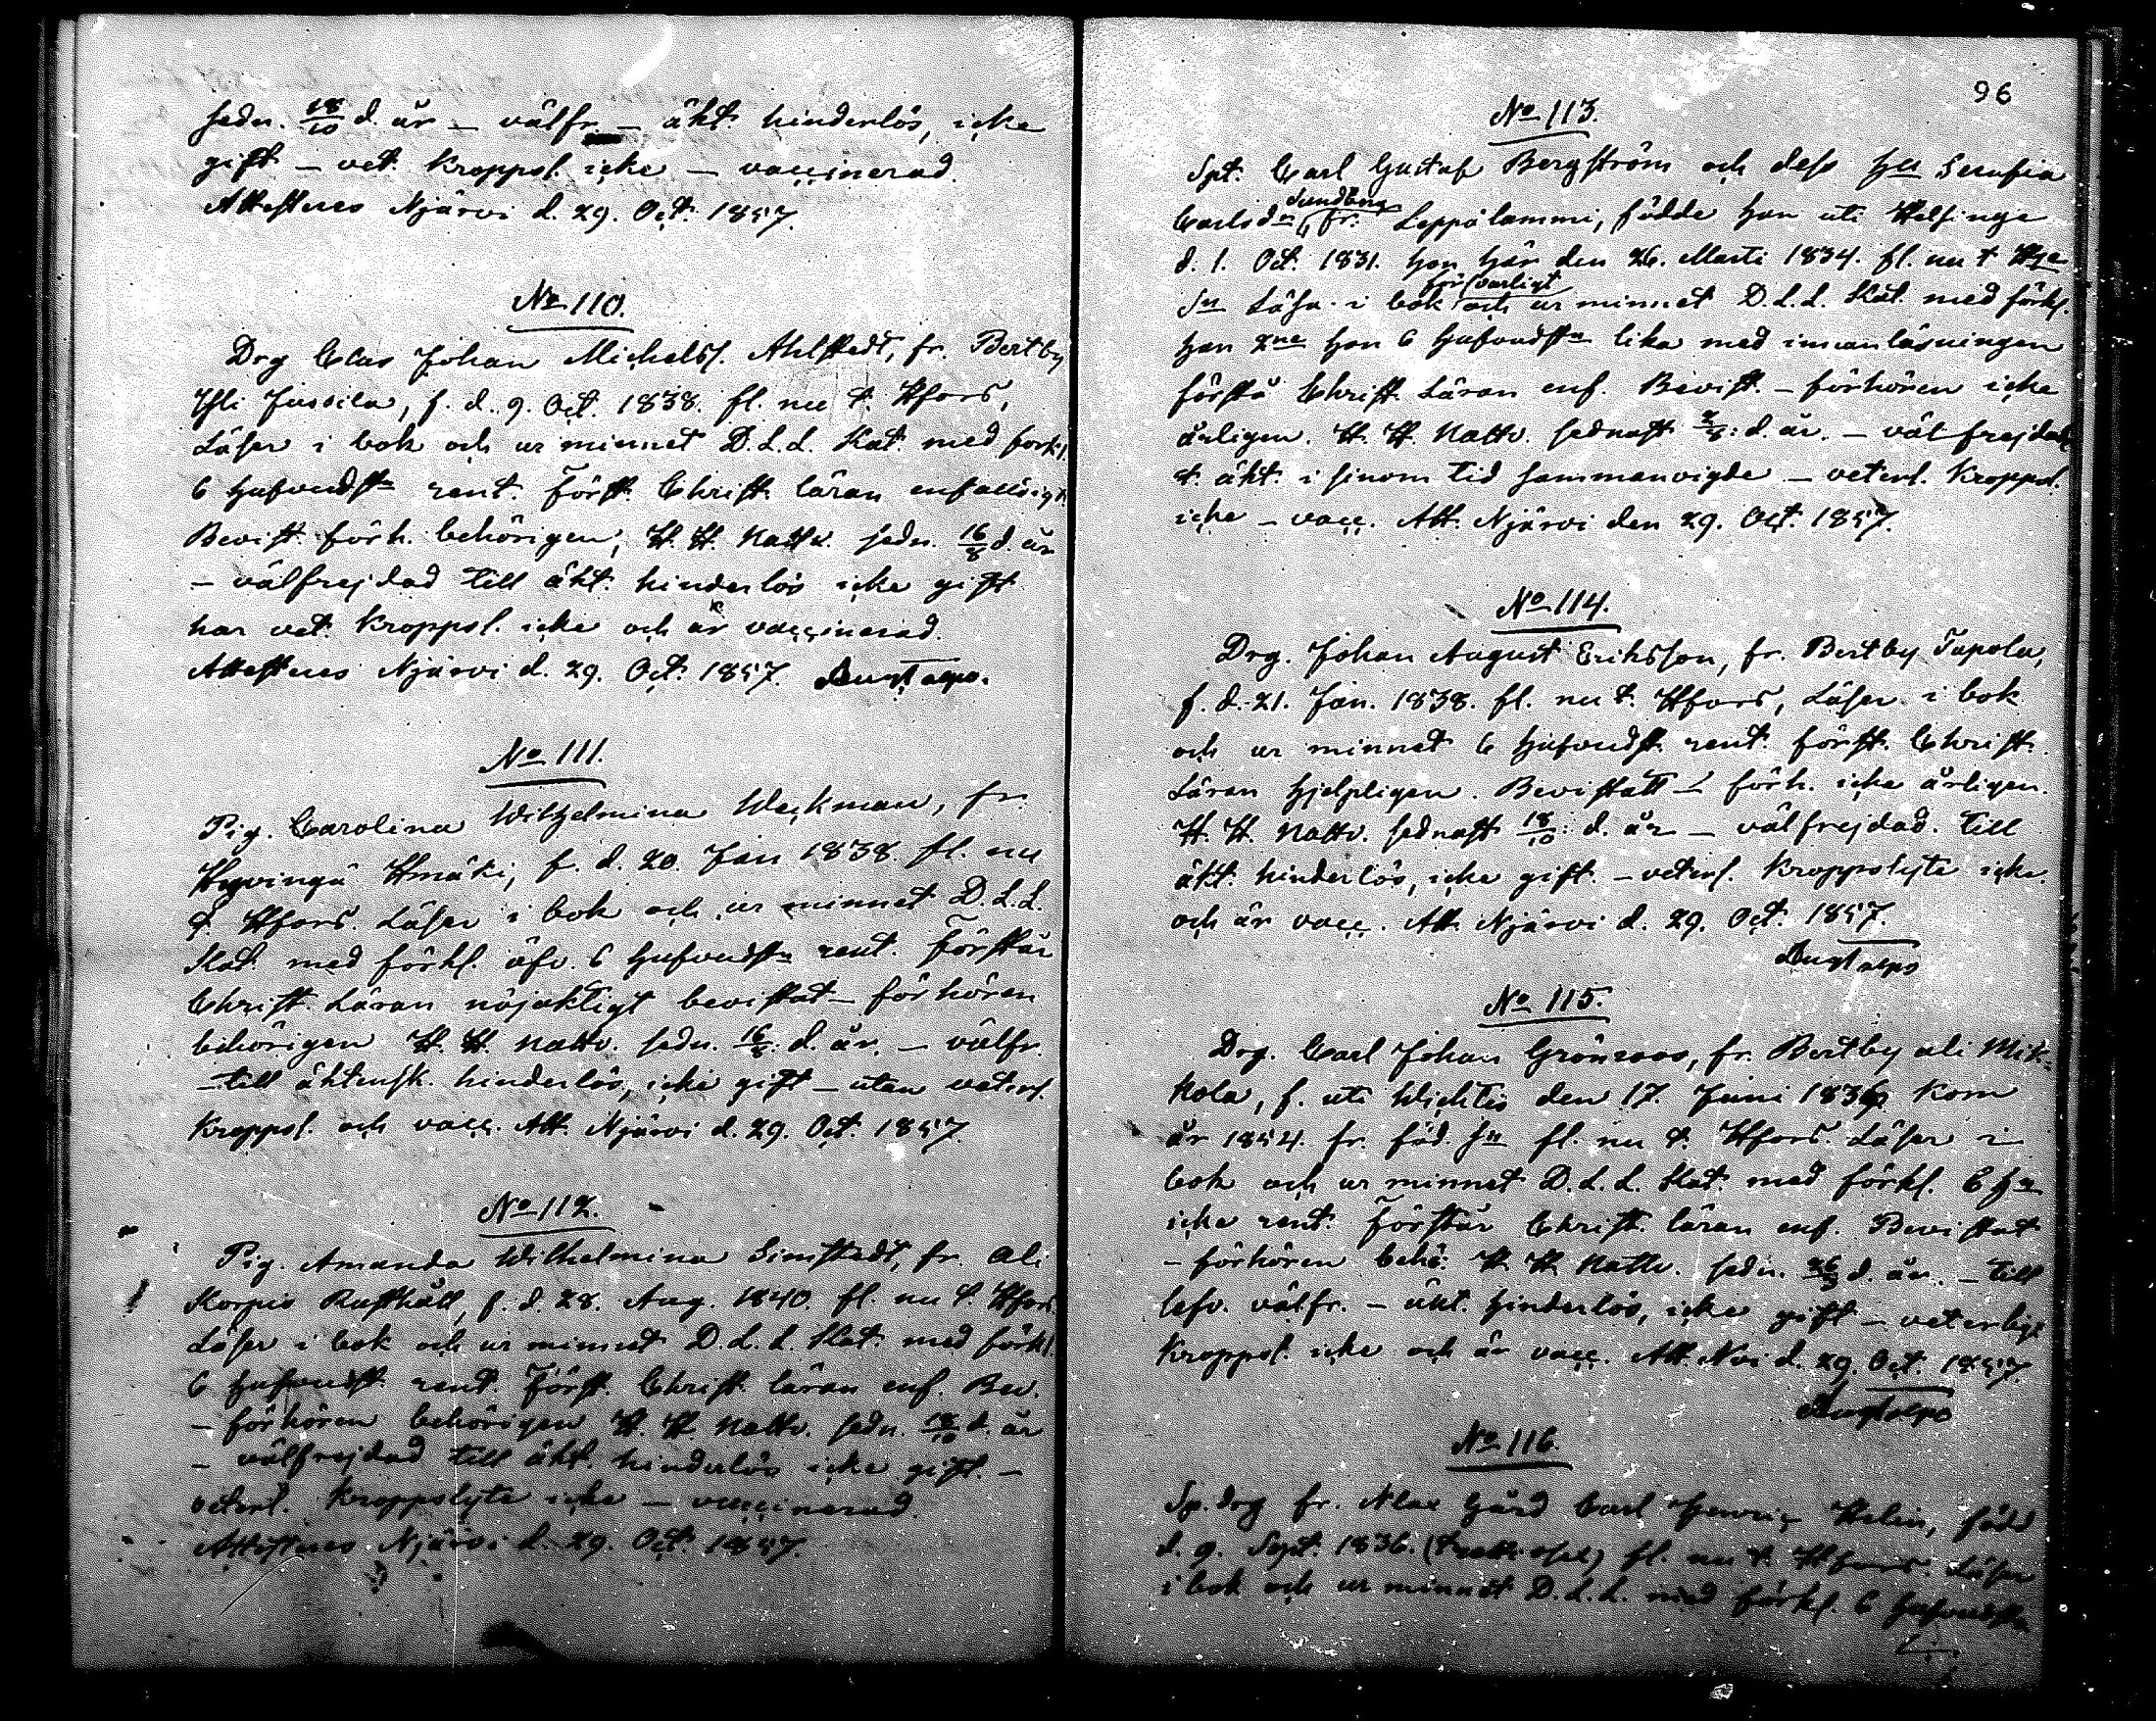 sedn. 18/10 d. år – välfr. – äkt. hinderlös, icke
gift – vet. Kroppsl. icke – vaccinerad.
Attesteras Njärvi d. 29. Oct. 1857.
No 110.
Drg Clas Johan Michelss. Ahlstedt, fr. Bertby
Yli Jussila, f. d. 9. Oct. 1838. fl. nu t. Hfors,
Läser i bok och ur minnet D. L. L. Kat. med förkl.
6 Hufvudst. rent. Först. Christ. läran enfaldigt.
Bevist. förh. behörigen, H. H. Nattv. sedn. 16/8 d. år
– välfrejdad till äkt. hinderlös icke gift
har vet. Kroppsl. icke och är vaccinerad.
Attesteras Njärvi d. 29. Oct. 1857.
No 111.
Pig. Carolina Wilhelmina Weckman, fr.
Hyvingä Hmäki, f. d. 20. Jan 1838. fl. nu
t. Hfors. Läser i bok och ur minnet D. L. L.
Kat. med förkl. öfv. 6 Hufvudst. rent. Förstår
Christ. Läran nöjaktigt bevistat – förhören
behörigen H. H. Nattv. sedn. 16/8 d. år. – välfr.
– till äktensk. hinderlös, icke gift – utan veterl.
Kroppsl. och vacc. Att. Njärvi d. 29. Oct. 1857.
No 112.
Pig. Amanda Wilhelmina Limstedt, fr. Ali
Korpis Rusthåll, f. d. 28. Aug. 1840. fl. nu t. Hfors
Läser i bok och ur minnet D. L. L. Kat. med förkl.
6 Hufvudst. rent. Först. Christ. läran enf. Bev.
– förhören behörigen H. H. Nattv. sedn. 18/10 d. år
– välfrejdad till äkt. hinderlös icke gift. –
veterl. Kroppslyte icke – vaccinerad.
Attesteras Njärvi d. 29. Oct. 1857.
96
No 113.
Spt. Carl Gustaf Bergström och dess Hu Serafia
Sundberg
Carlsdr fr. Leppälammi, födde han uti Helsinge
d. 1. Oct. 1831. hon här den 26. Marti 1834. fl. nu t
försvarligt
Läsa i bok och ur minnet D. L. L. Kat. med förkl.
han 2ne hon 6 Hufvudst. lika med innanläsningen
förstå Christ. Läran enf. Bevist. – förhören icke
årligen. H. H. Nattv. sednast d. år. – väl frejdade
t. äkt. i sinom tid sammanvigde – veterl. Kroppsl.
icke – vacc. Att. Njärvi den 29. Oct. 1857.
No 114.
Drg. Johan August Eriksson, fr. Bertby Tapola,
f. d. 21. Jan. 1838. fl. nu t. Hfors, Läser i bok
och ur minnet 6 Hufvudst. rent. Först. Christ.
Läran hjelpligen. Bevistatt – förh. icke årligen.
H. H. Nattv. sednast 18/10 d. år – välfrejdad. till
äkt. hinderlös, icke gift. – veterl. Kroppslyte icke.
och är vacc. Att. Njärvi d. 29. Oct. 1857.
No 115.
Drg. Carl Johan Grönroos, fr. Bertby ali Mik-
kola, f. uti Wichtis den 17. Juni 1836 Kom
år 1854. fr. föd. sn fl. nu t. Hfors. Läser i
bok och ur minnet D. L. L. Kat. med förkl. 6 Hu
icke rent. Förstår Christ. läran enf. Bevistat
– förhören behö. H. H. Nattv. sedn. d. år. – till
lefv. välfr. – äkt. hinderlös, icke gift – veterligt
Kroppsl. icke och är vacc. Att. Nvi d. 29. Oct. 1857.
No 116.
Sp. drg fr. gård Carl Henric Helin, född
d. 9. Sept. 1836. fl. nu t. Hfors. Läser
i bok och ur minnet D. L. L. med förkl. 6 Hufvudst.